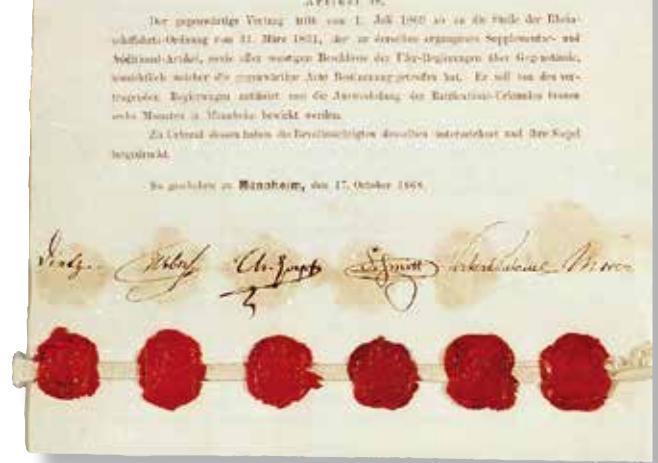 Artikel 48.
Der gegenwärtige Vertrag tritt vom 1. Juli 1869 ab an die Stelle der Rhein-
schiffahrts-Ordnung vom 31. März 1831, der zu derselben ergangenen Supplementar- und
Additional-Artikel, sowie aller sonstigen Beschlüsse der Ufer-Regierungen über Gegenstände,
hinsichtlich welcher die gegenwärtige Acte Bestimmung getroffen hat. Er soll von den ver-
tragenden Regierungen ratificirt und die Auswechslung der Ratifications-Urkunden binnen
sechs Monaten in Mannheim bewirkt werden.
Zu Urkund dessen haben die Bevollmächtigten denselben unterzeichnet und ihre Siegel
beigedruckt.
So geschehen zu Mannheim, den 17. October 1868.
Dietz. Weber Schmitt